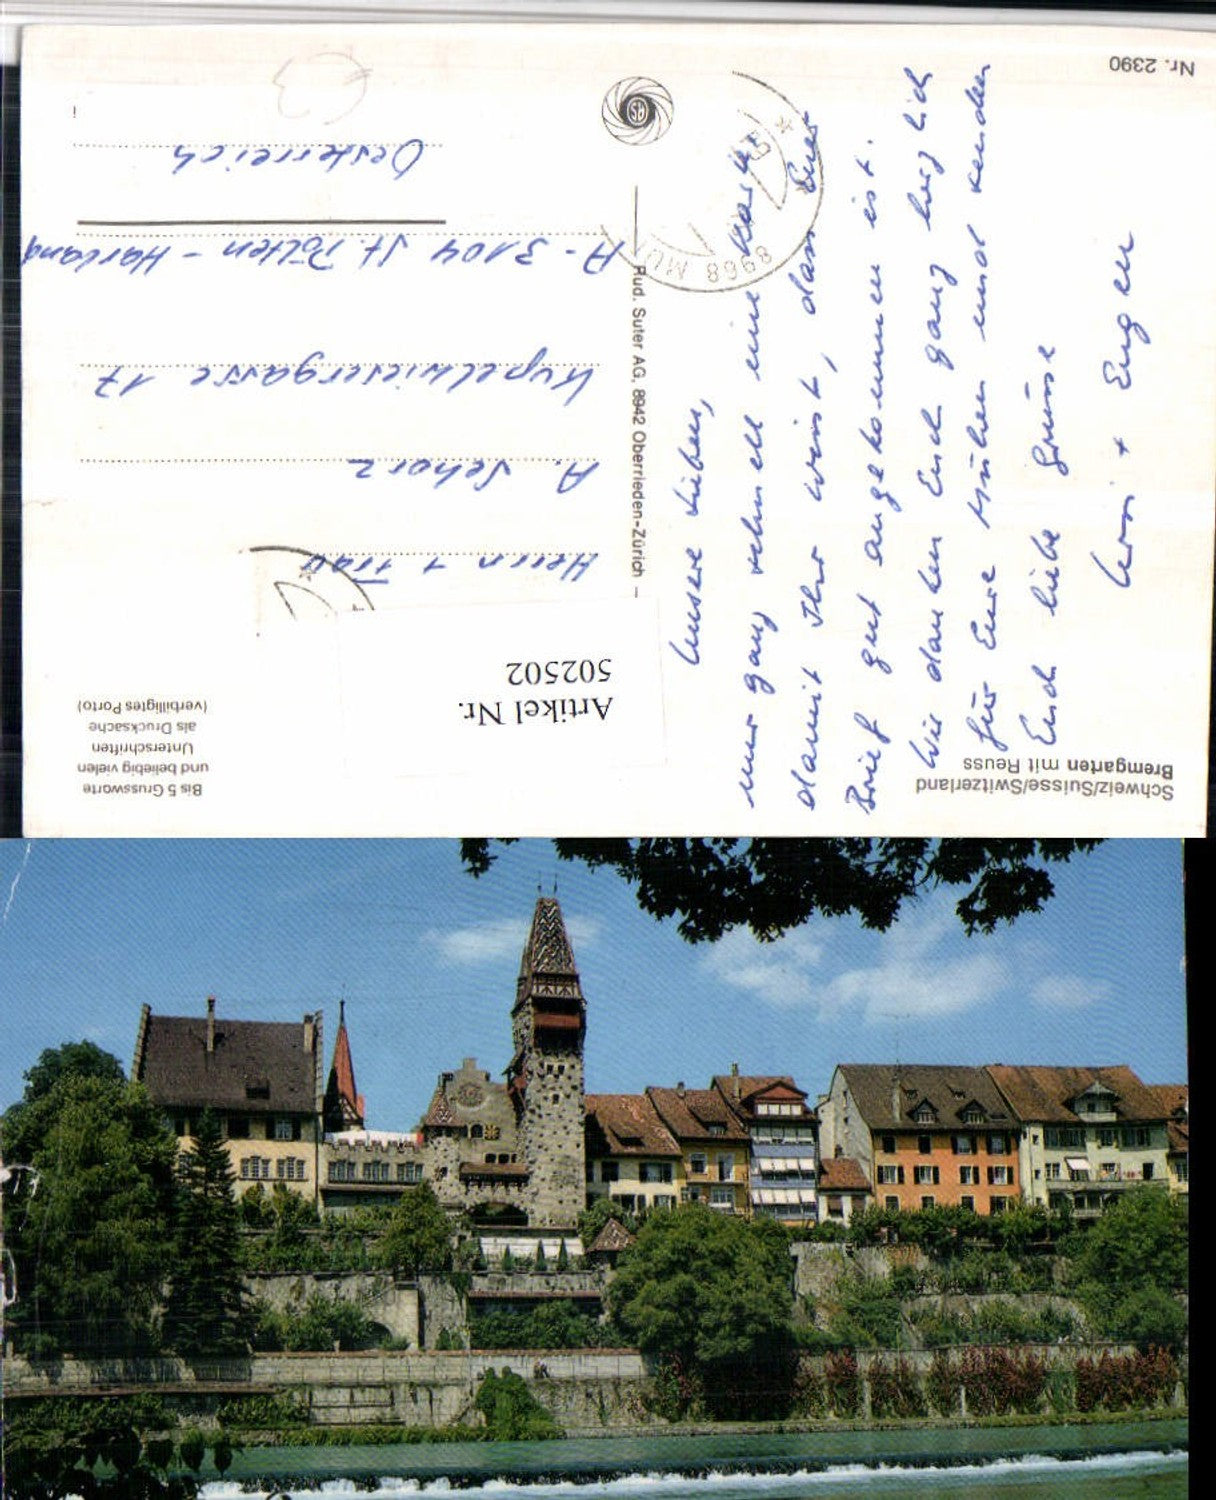 Schweiz/Suisse/Switzerland
Bremgarten mit Reuss
Nr. 2390
Unsere Lieben,
nur ganz schnell eine Karte
damit Ihr wisst, dass Euer
Brief gut angekommen ist.
Wir danken Euch ganz herzlich
für Eure Mühen und senden
Euch liebe Grüsse
+ Eugen
Rud. Suter AG, 8942 Oberrieden-Zürich –
SA
8968 MU
Bis 5 Grussworte
und beliebig vielen
Unterschriften
als Drucksache
(verbilligtes Porto)
Artikel Nr.
502502
Herrn + Frau
A. Schorz
Kupelwiesergasse 17
A - 3104 St. Pölten - Harland
Oesterreich